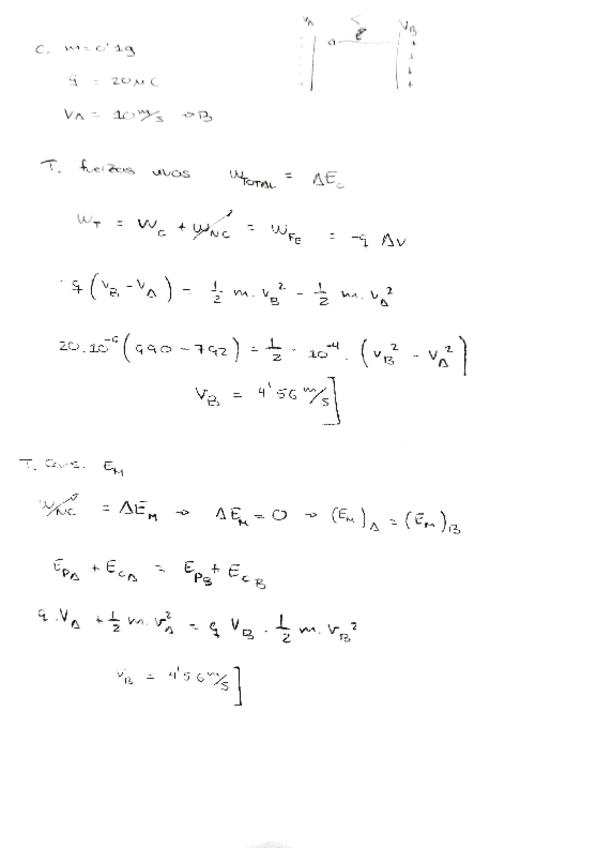 VA VB
c. m=0'1g
q = 20μC
VA = 10 m/s → B
T. fuerzas vivas W_TOTAL = ΔE_c
W_T = W_c + W_NC = W_FE = -q ΔV
- q (V_B - V_A) = 1/2 m. v_B² - 1/2 m. v_A²
20.10⁻⁶ (990 - 792) = 1/2 · 10⁻⁴. (v_B² - v_A²)
V_B = 4'56 m/s]
T. cons. E_M
W_NC = ΔE_M → ΔE_M = 0 → (E_M)_A = (E_M)_B
E_PA + E_CA = E_PB + E_CB
q.V_A + 1/2 m. v_A² = q V_B . 1/2 m. v_B²
v_B = 4'56 m/s]